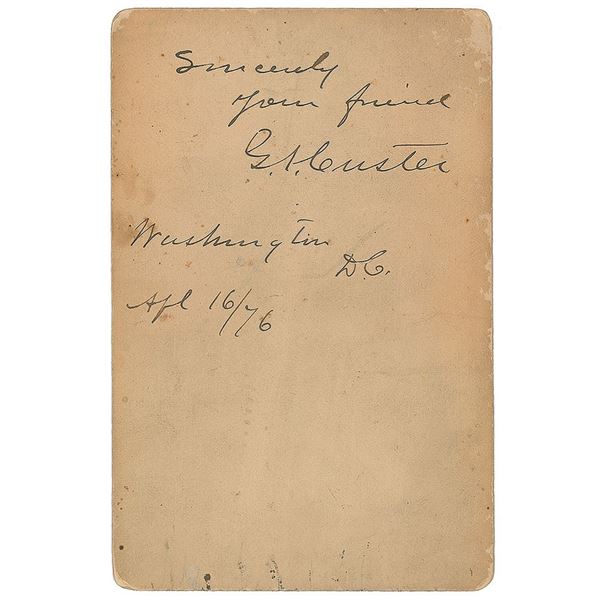 Sincerely
Your friend
G.A. Custer
Washington
D.C.
Apl 16/76